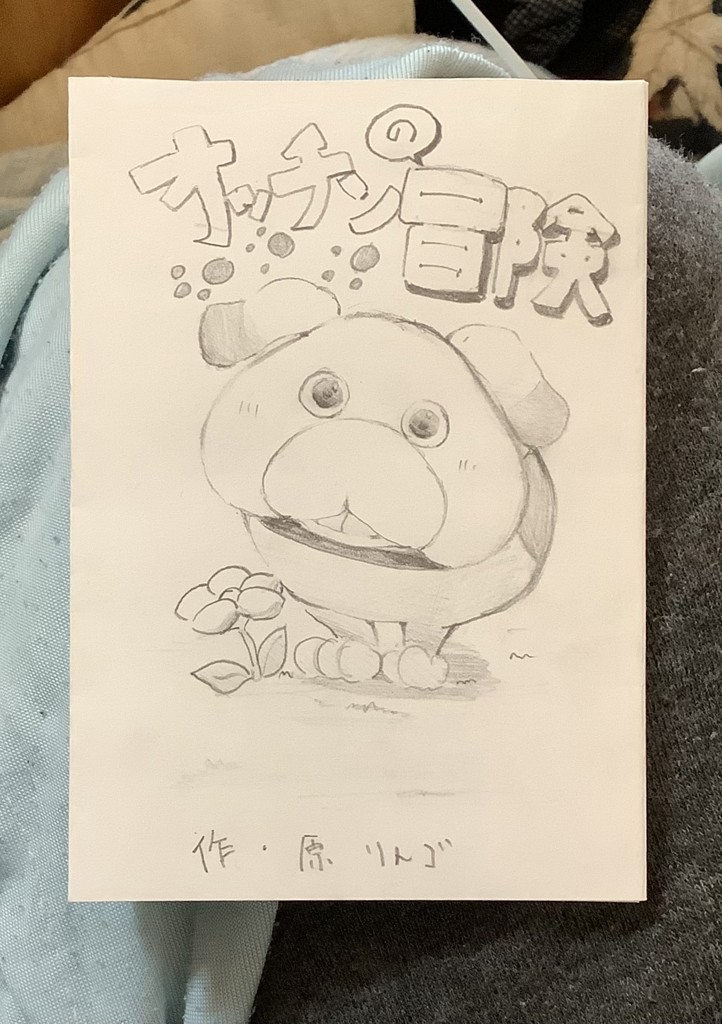 オッチンの冒険
作・原りんご